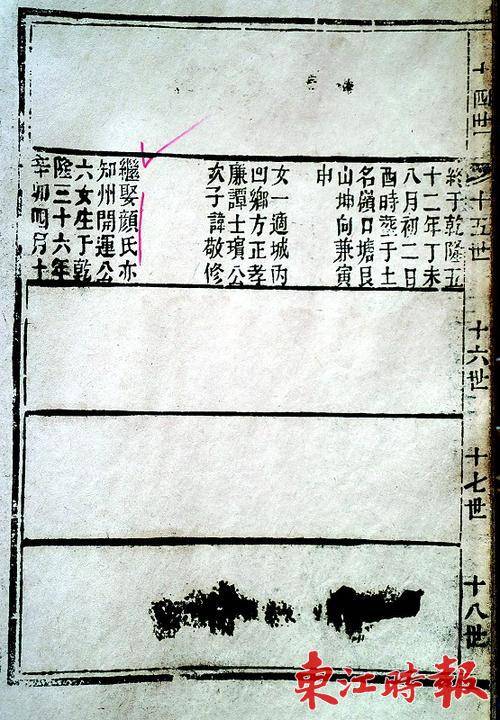 十四世
十五世
終于乾隆五
十二年丁未
八月初二日
酉時葬于土
名嶺口塘艮
山坤向兼寅
申
女一適城內
凹鄉方正孝
廉譚士璸公
次子諱敬修
繼娶顏氏亦
知州開運公
六女生于乾
隆三十六年
辛卯四月十
十六世
十七世
十八世
東江時報